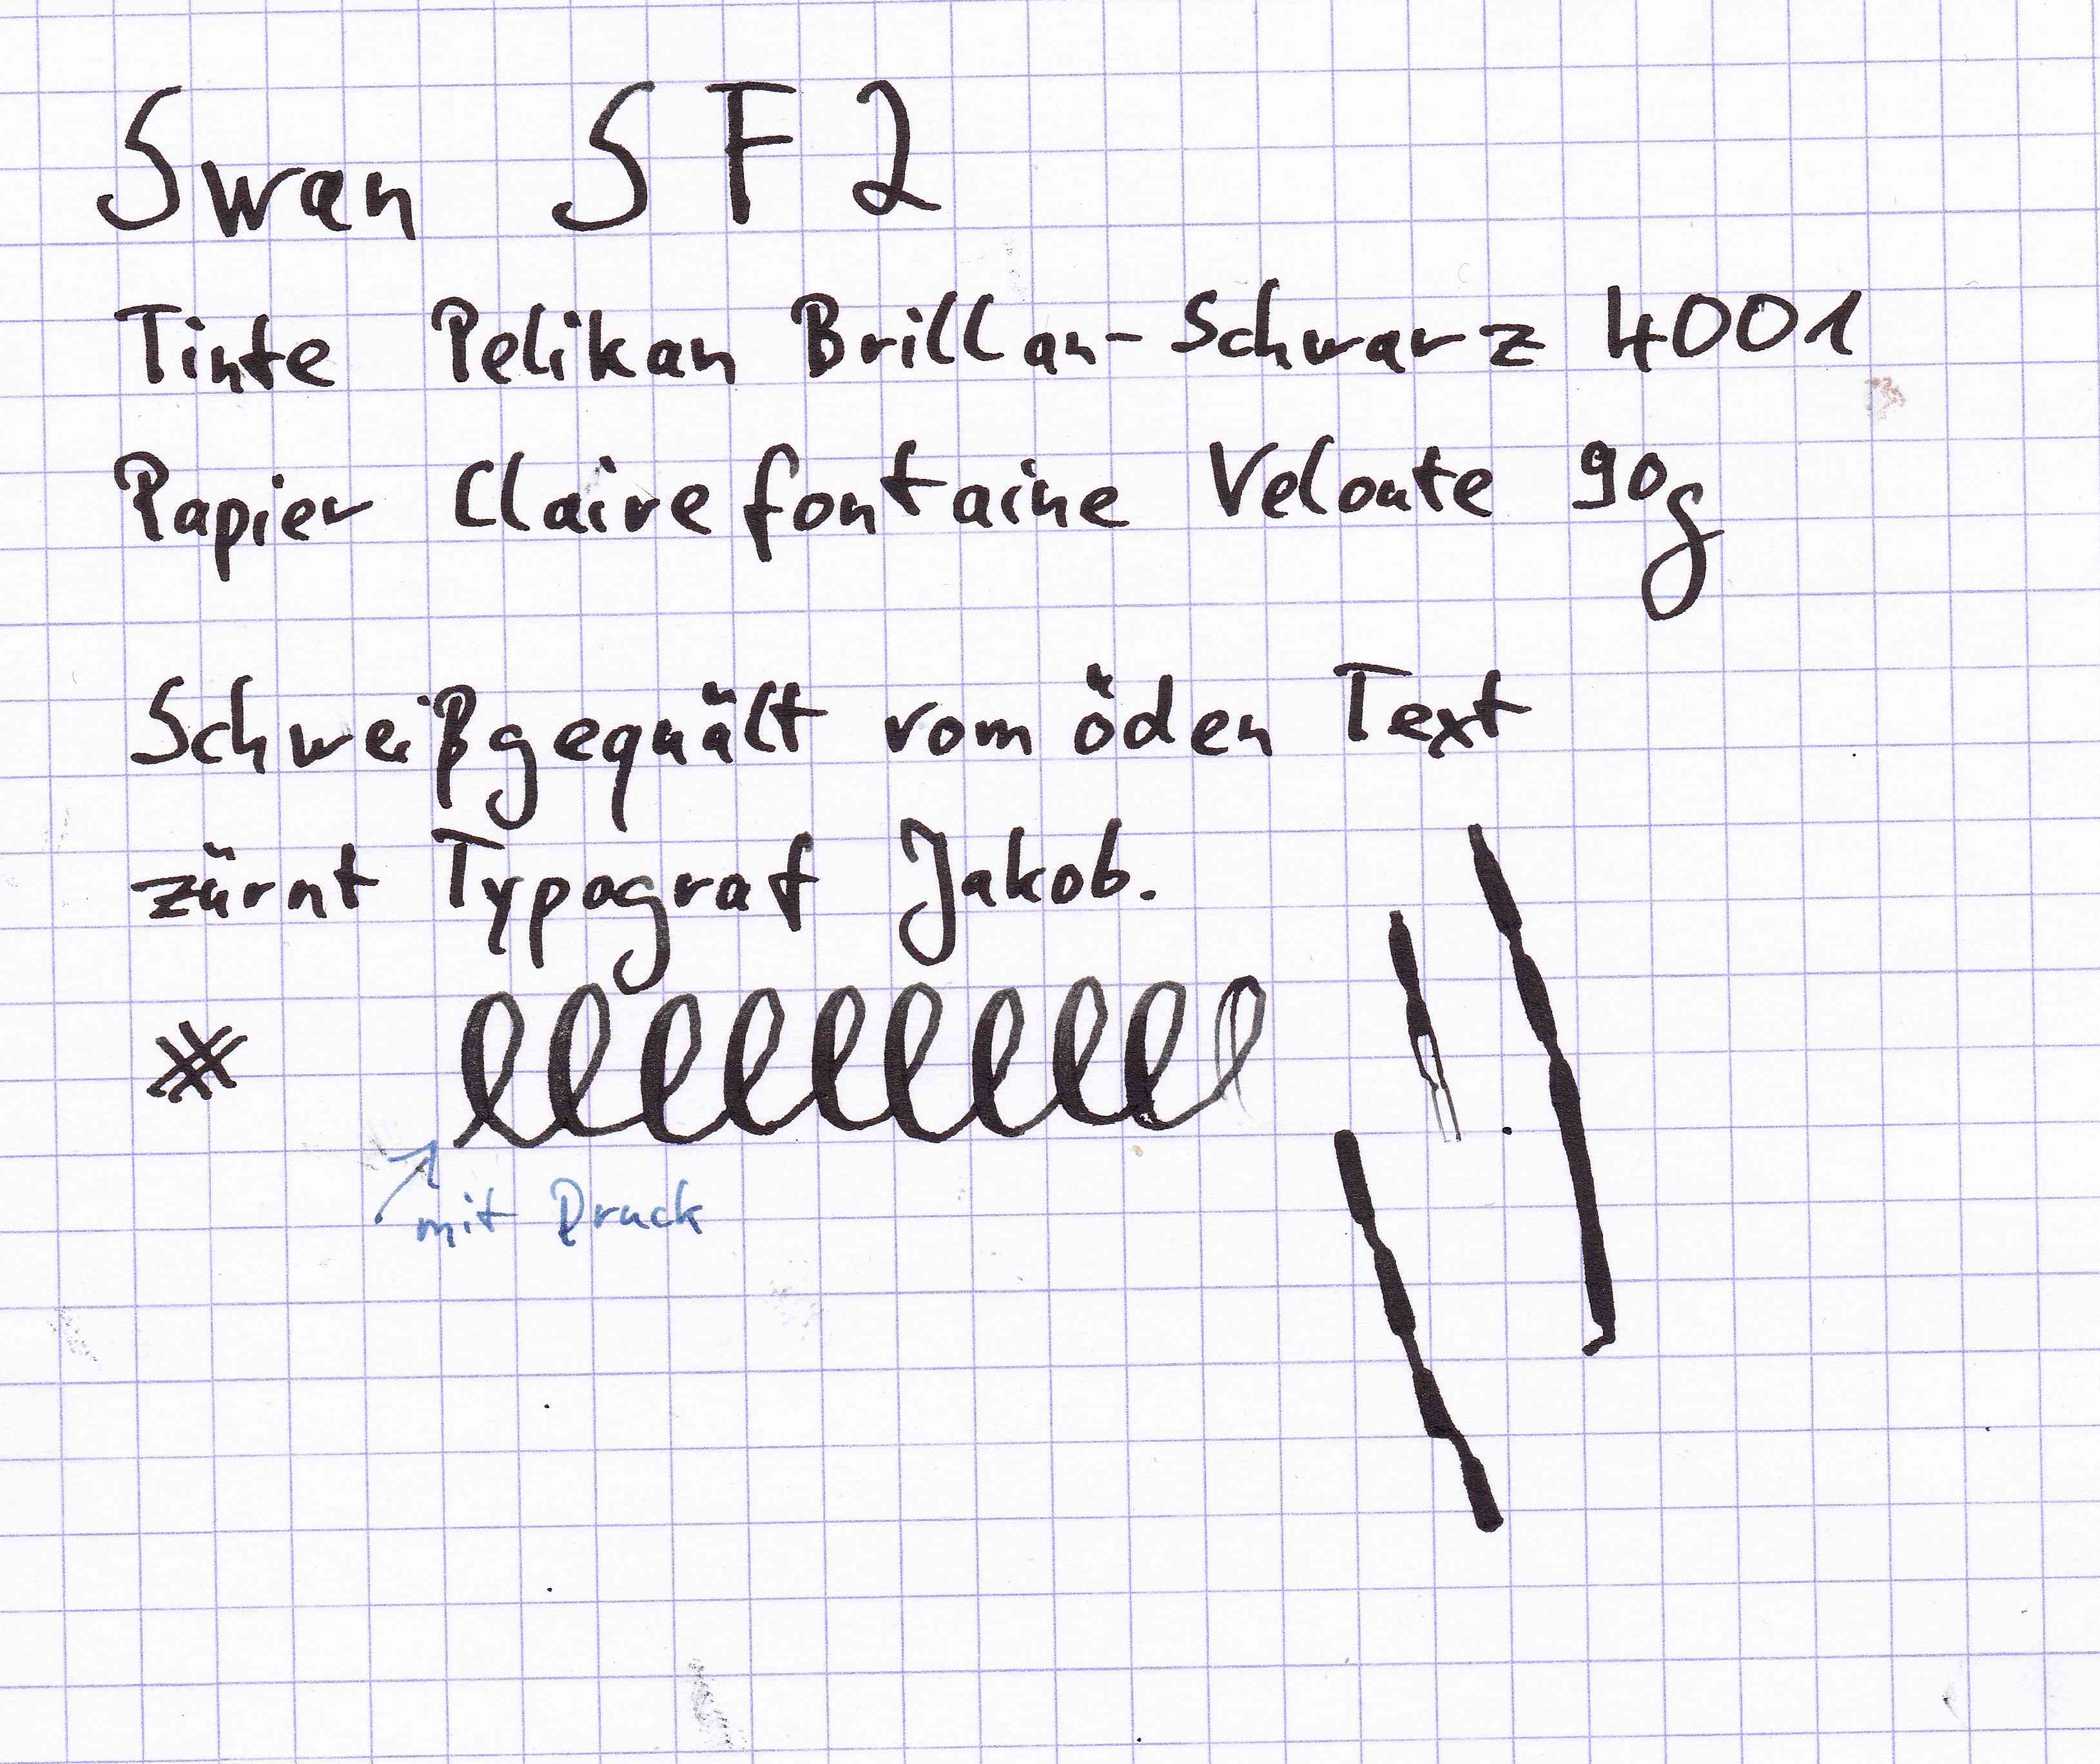 Swan SF2
Tinte Pelikan Brillan-Schwarz 4001
Papier Clairefontaine Veloute 90g
Schweißgequält vom öden Text
zürnt Typograf Jakob.
llllllllll
mit Druck